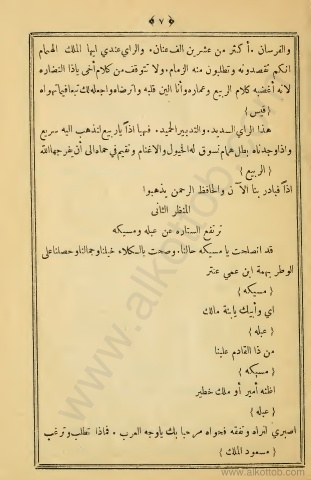 ﴿ ٧ ﴾
والفرسان . أكثر من عشرين الف عنان . والراي عندي ايها الملك الهمام
انكم تقصدونه وتطلبون منه الزمام . ولا تتوقف من كلام أخي ياذا النضاره
لانه أغضبه كلام الربيع وعماره وأنا الين قلبه وارضاه واجعله لك تبعا فيما تهواه
{ قيس }
هذا الراي السديد . والتدبير الحميد . فهيا اذا ياربيع لتذهب اليه سريع
واذا وجدناه بطل همام نسوق له الخيول والاغنام ونقيم في حماه الى أن يفرجها الله
{ الربيع }
اذا فبادر بنا الآن والحافظ الرحمن يذهبوا
المنظر الثانى
ترتفع الستاره عن عبله ومسيكه
قد انصلحت يا مسيكه حالنا . وصحت بالكلاء خيلنا وجمالنا وحصلنا على
الوطر بهمة ابن عمي عنتر
{ مسيكه }
اي وأبيك يابنة مالك
{ عبله }
من ذا القادم علينا
{ مسيكه }
اظنه أمير أو ملك خطير
{ عبله }
اصبري لنراه ونفقه فحواه مرحبا بك ياوجه العرب . فماذا تطلب وترغب
{ مسعود الملك }
www.alkottob.com
www.alkottob.com